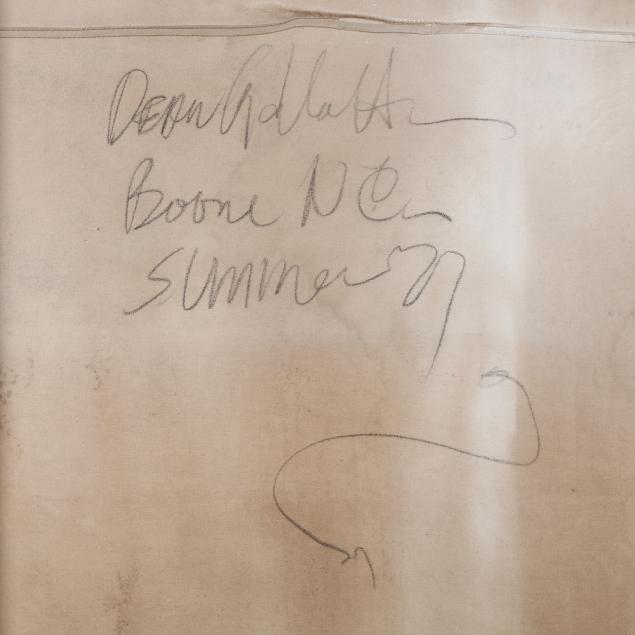 Dean Gillette
Boone NC
Summer 77